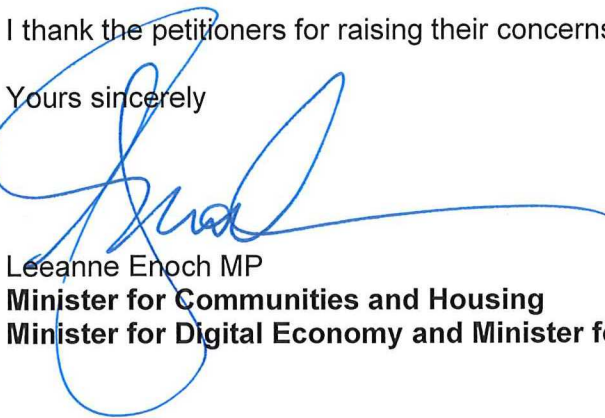 I thank the petitioners for raising their concerns
Yours sincerely
Leeanne Enoch MP
Minister for Communities and Housing
Minister for Digital Economy and Minister